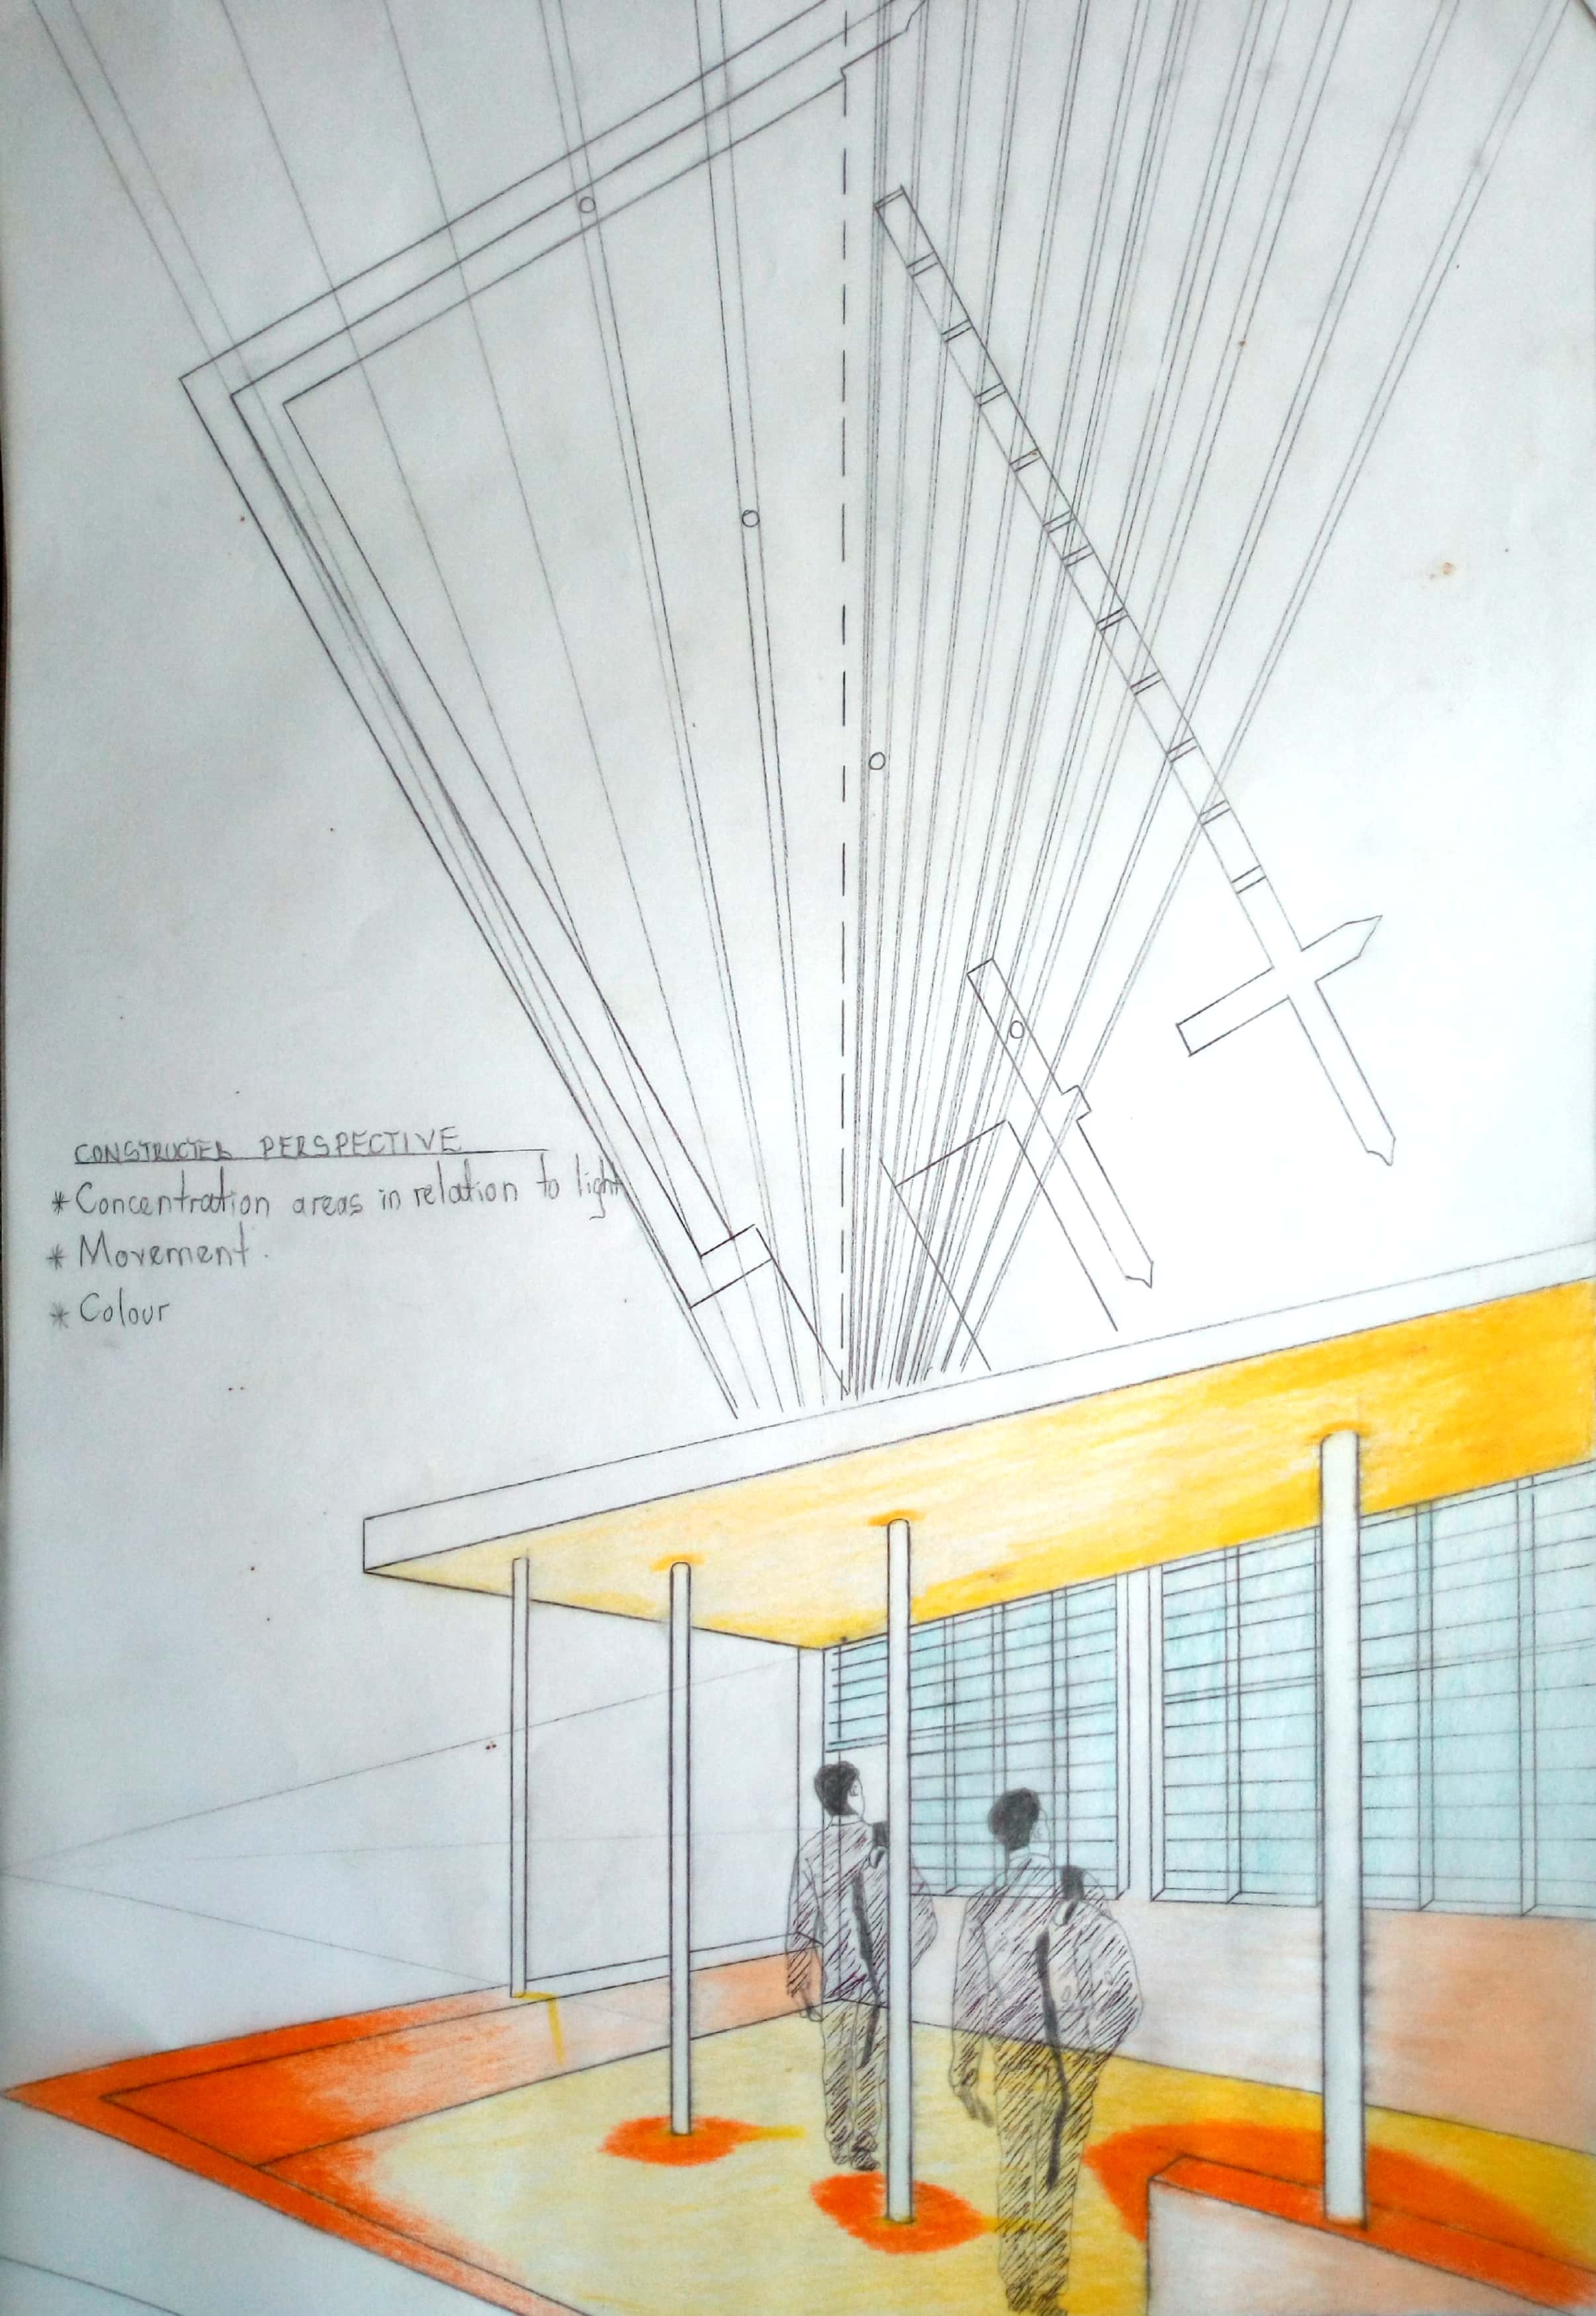 CONSTRUCTED PERSPECTIVE
* Concentration areas in relation to light
* Movement.
* Colour